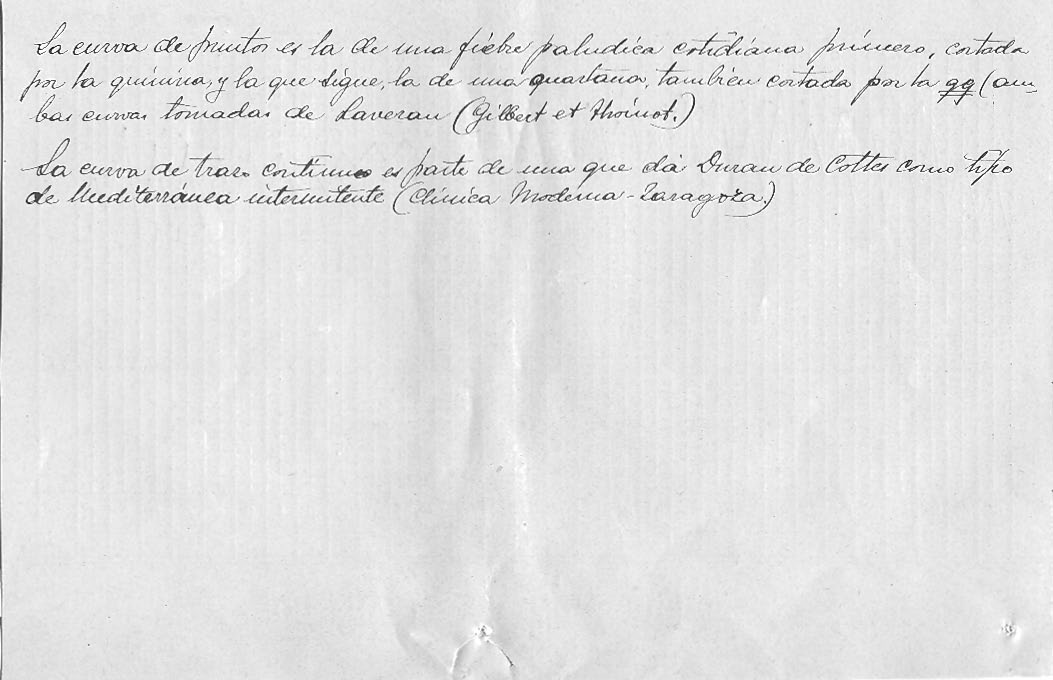 La curva de puntos es la de una fiebre palúdica cotidiana primero, cortada
por la quinina, y la que sigue, la de una quartana, también cortada por la qq (am-
bas curvas tomadas de Laveran (Gilbert et Thoinot.)
La curva de trazo continuo es parte de una que dá Duran de Cottes como tipo
de Mediterránea intermitente (Clínica Moderna - Zaragoza.)